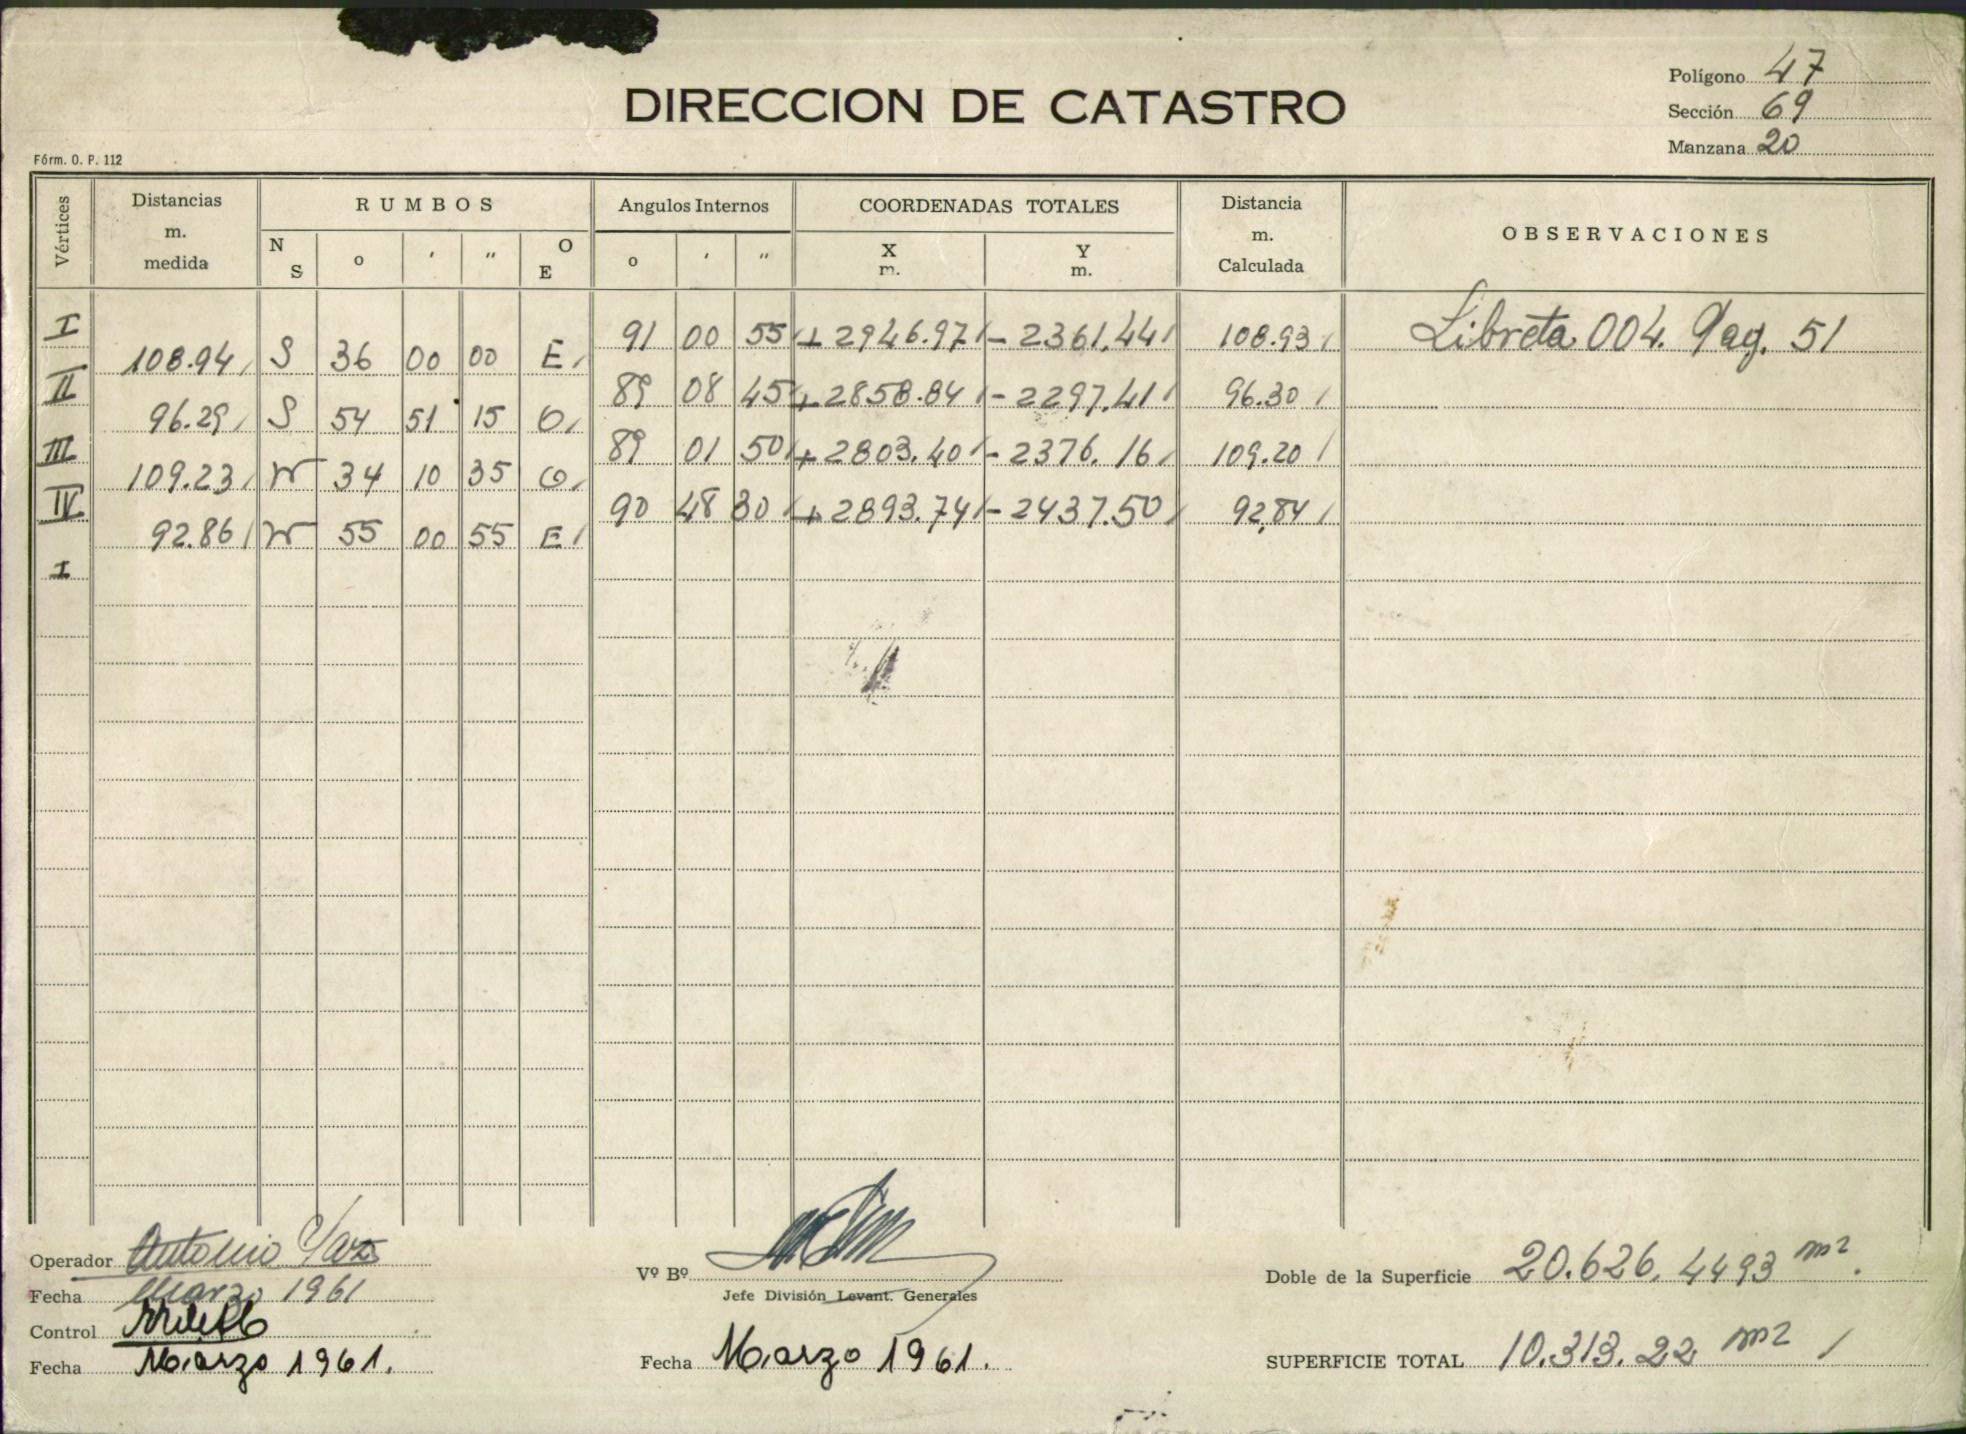 Polígono 47
DIRECCION DE CATASTRO
Sección 69
Manzana 20
Fórm. O. P. 112
Vértices
Distancias m. medida
RUMBOS
N S o ' " O E
Angulos Internos
o ' "
COORDENADAS TOTALES
X m. Y m.
Distancia m. Calculada
OBSERVACIONES
I 91 00 55 + 2946.97 - 2361.44 108.93 Libreta 004. Pag. 51
108.94 S 36 00 00 E
II 89 08 45 + 2858.84 - 2297.41 96.30
96.29 S 54 51 15 O
III 89 01 50 + 2803.40 - 2376.16 109.20
109.23 N 34 10 35 O
IV 90 48 30 + 2893.74 - 2437.50 92.84
92.86 N 55 00 55 E
I
Operador Antonio
Fecha Marzo 1961
Control
Fecha Marzo 1961.
Vº Bº
Jefe División Levant. Generales
Fecha Marzo 1961.
Doble de la Superficie 20.626.4493 m2.
SUPERFICIE TOTAL 10.313.22 m2